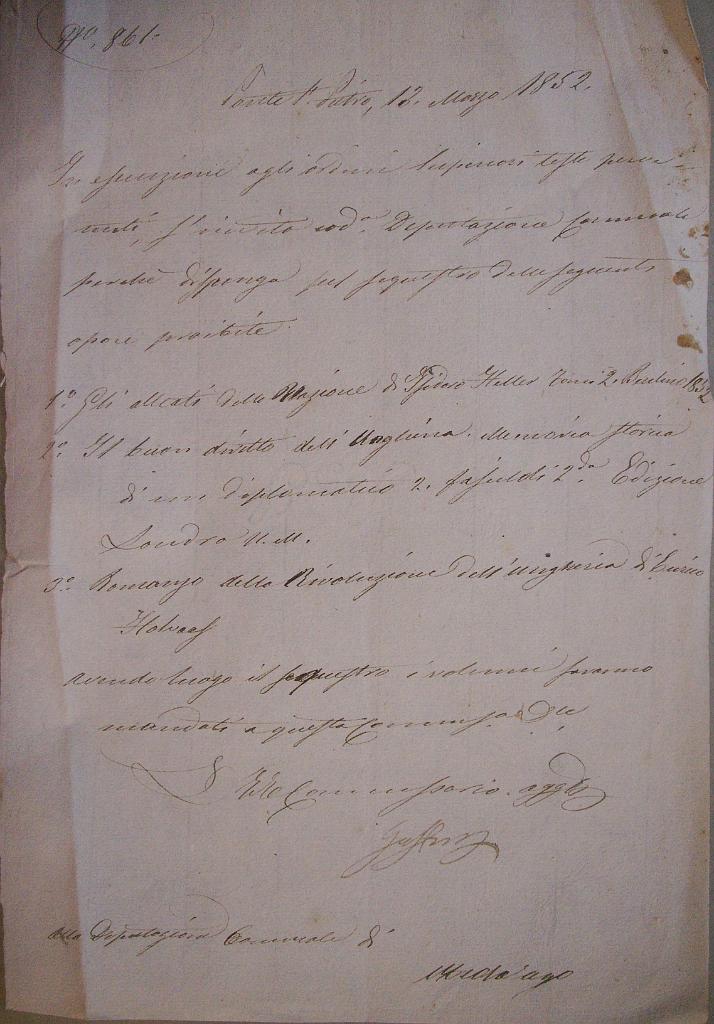 N.o 861.
Ponte S. Pietro, 13. Marzo 1852.
In esecuzione agli ordini Superiori testè perve-
nuti, s'invita cod.a Deputazione Comunale
perchè disponga pel sequestro delle seguenti
opere proibite.
1.o Gli alleati della Reazione di Isidoro Heller Tomi 2. Berlino 1852
2.o Il buon diritto dell'Ungheria. Memoria storica
di un diplomatico 2. fascicoli 2.da Edizione
Londra
3.o Romanzo della Rivoluzione dell'Ungheria di Enrico
avendo luogo il sequestro i volumi saranno
mandati a questa Commis.a Dle
Il R. Commissario. agg.to
Alla Deputazione Comunale di
Medolago